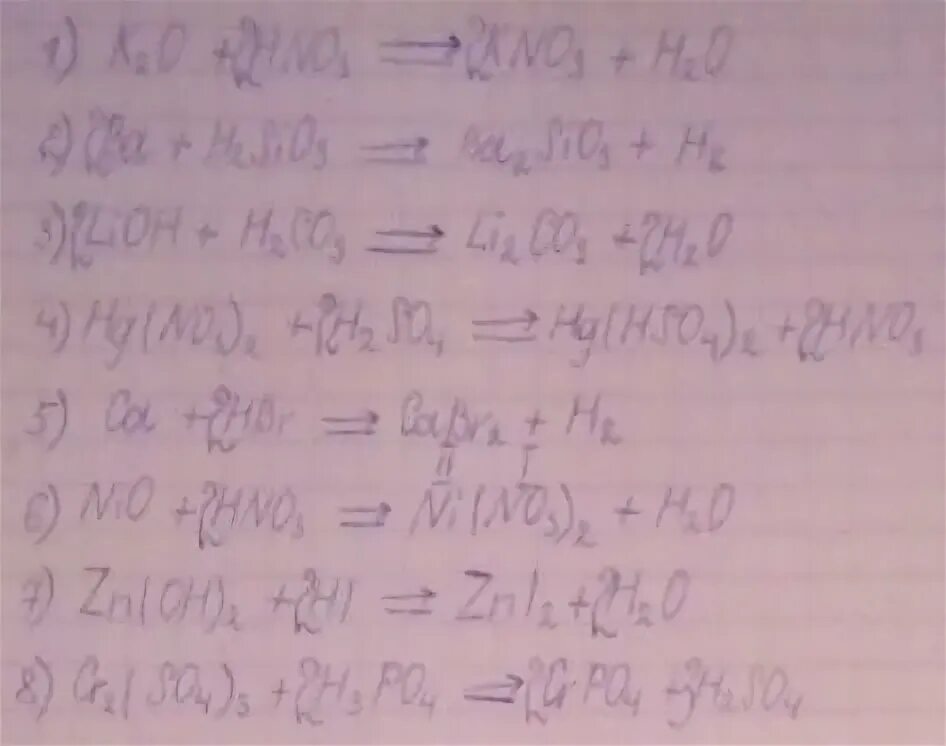 1) K₂O + 2HNO₃ ⟹ 2KNO₃ + H₂O
2) 2Ba + H₂SiO₃ ⟹ Ba₂SiO₃ + H₂
3) 2LiOH + H₂CO₃ ⟹ Li₂CO₃ + 2H₂O
4) Hg(NO₃)₂ + 2H₂SO₄ ⟹ Hg(HSO₄)₂ + 2HNO₃
5) Ca + 2HBr ⟹ CaBr₂ + H₂
II I
6) NiO + 2HNO₃ ⟹ Ni(NO₃)₂ + H₂O
7) Zn(OH)₂ + 2HI ⟹ ZnI₂ + 2H₂O
8) Cr₂(SO₄)₃ + 2H₃PO₄ ⟹ 2CrPO₄ + 3H₂SO₄